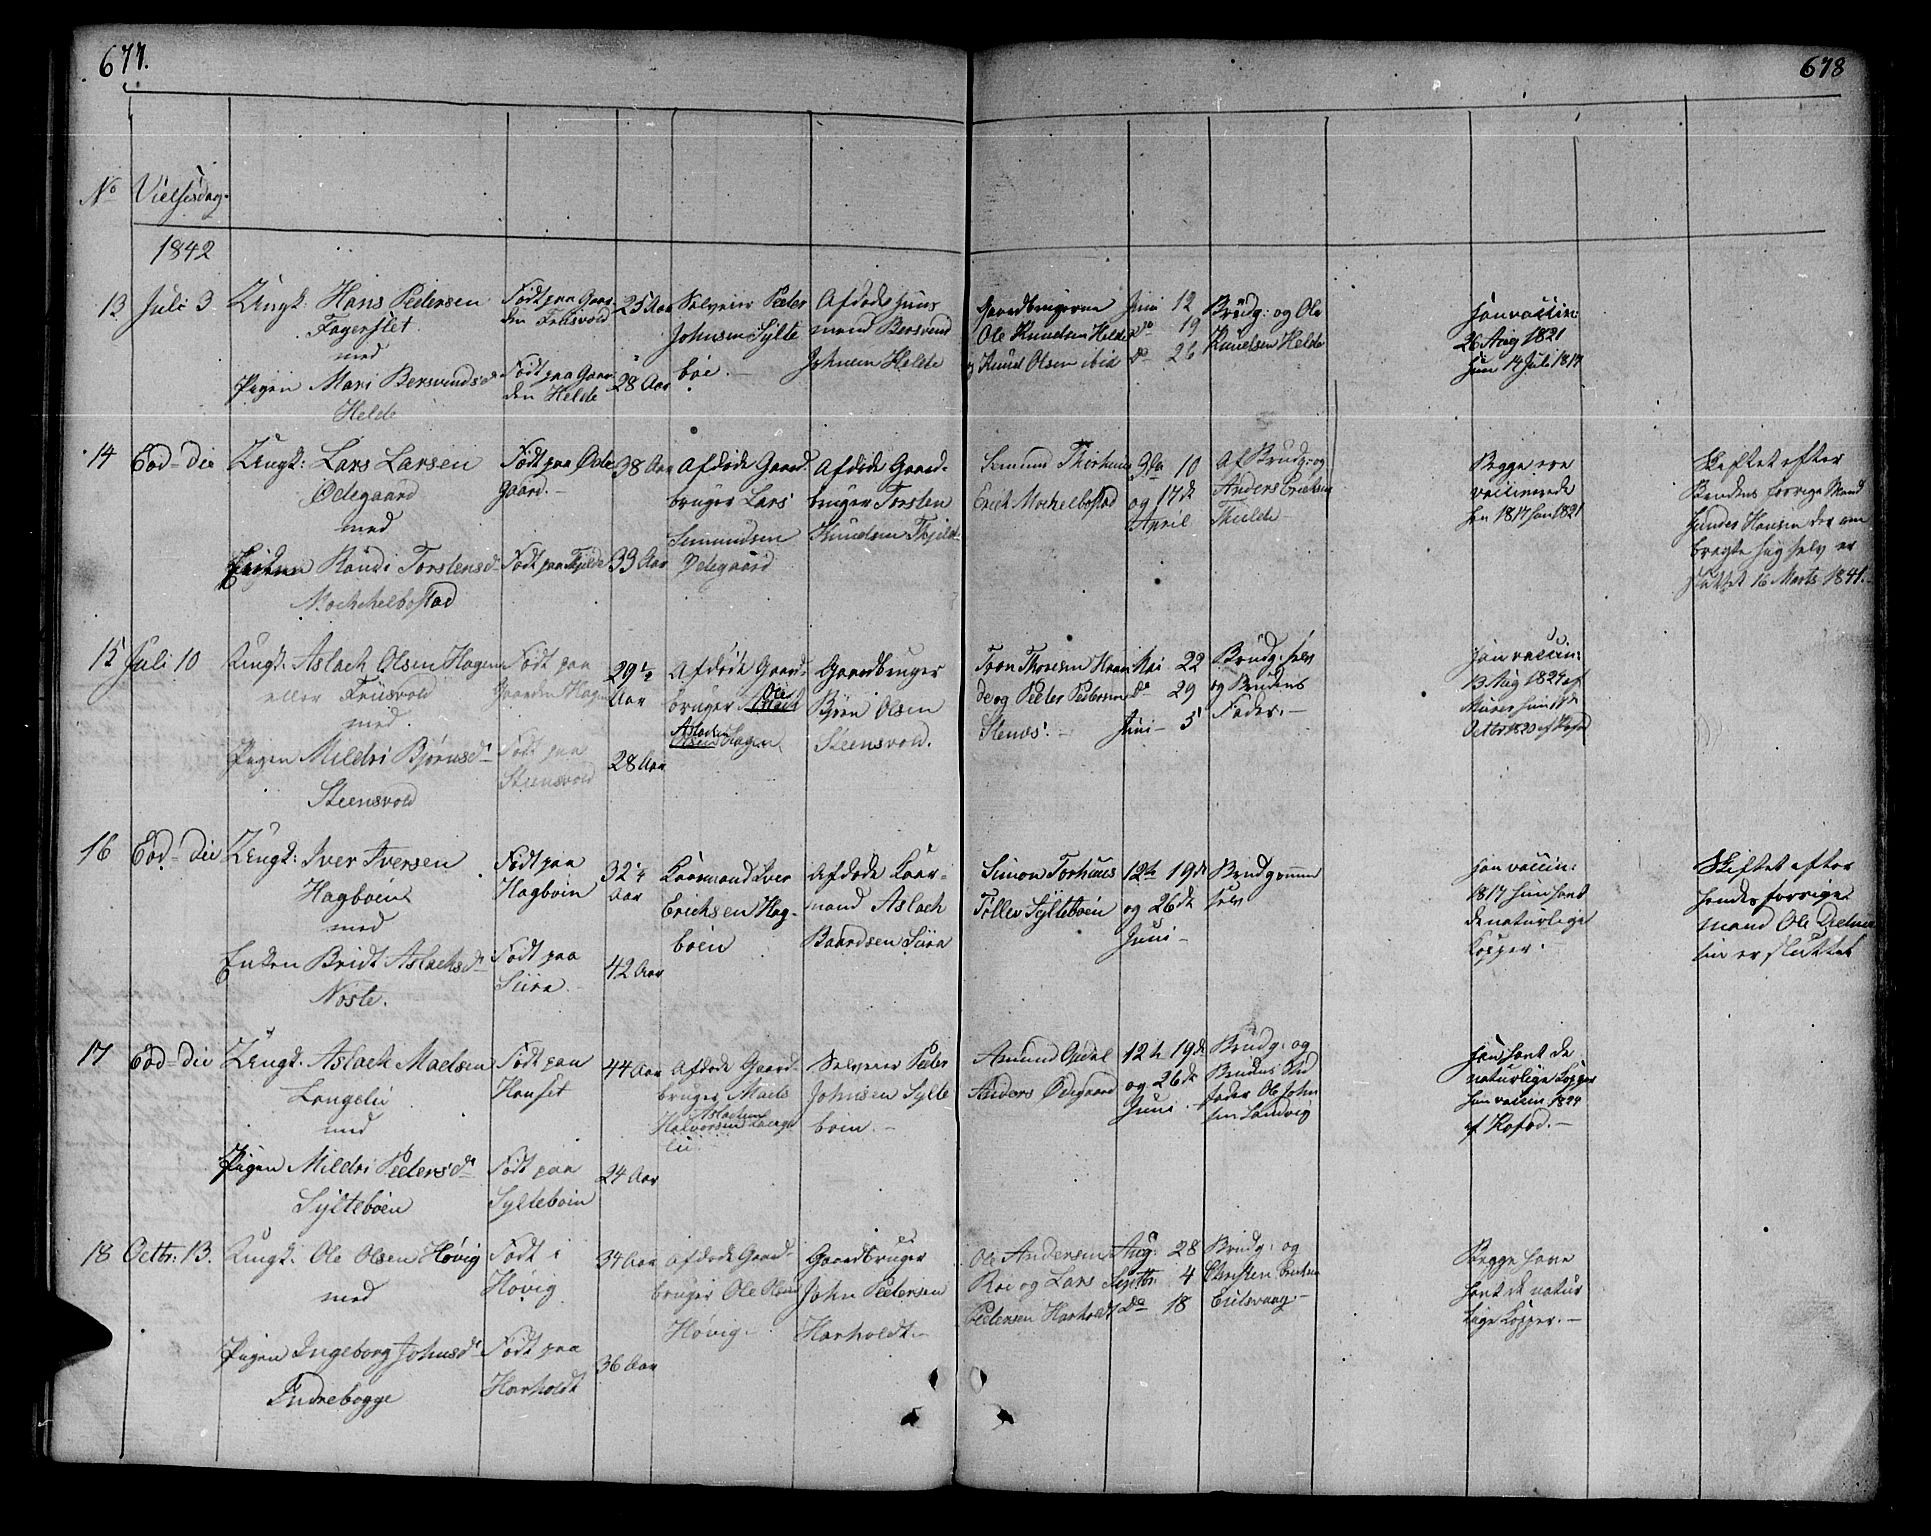 677.
678
No Vielsesdag.
1842
13 Juli 3 Ungk: Hans Pedersen
Fagerslet
med
Pigen Mari Bersvendsd
Helde
Født paa Gaar
den Friisvold
Født paa Gaar
den Helde
25 Aar
28 Aar
Selveier Peder
Johnsen Sylte
bøe.
Afdøde Huus
mand Bersvend
Johnsen Helde
Gaardbrugerne
Ole Knudsen Helde
og Knud Olsen ibid
Juni 12
do 19
do 26
Brudg: og Ole
Knudsen Helde
Han vaccin:
26 Aug 1821
hun 14 Juli 1817
14 Eod-die Ungk: Lars Larsen
Ødegaard
med
Enken Randi Torstensd
Mochelbostad
Født paa Øde
gaard.
Født paa Thjelde
38 Aar
33 Aar
Afdøde Gaard
bruger Lars
Simundsen
Ødegaard
Afdøde Gaard-
bruger Torsten
Knudsen Thjelde
Simund Thorhuus
Erich Mochelbostad
3die 10
og 17de
April
Af Brudg: og
Anders Erichsen
Thielde
Begge ere
vaccinerede
han 1817 hun 1821
Skiftet efter
Brudens forrige Mand
Hansen der om
bragte sig selv er
sluttet 16 Marts 1841.
15 Juli 10 Ungk: Aslach Olsen Hagen
eller Friisvold
med.
Pigen Mildri Bjørnsd
Steensvold
Født paa
Gaarden Hagen
Født paa
Steensvold
29½
Aar
28 Aar
Afdøde Gaard-
bruger Ole
Aslachsen
Hagen
Gaardbruger
Bjørn Olsen
Steensvold.
Toon Thoresen Haan
de og Peder Pedersen
Stenes.
Mai 22
do 29
Juni 5
Brudg: selv
og Brudens
Fader.
Han vaccin:
13 Aug 1824 af
hun
Octbr 1820 af Kofod
16 Eod-die Ungk: Iver Iversen
Hagbøen
med
Enken Bridt Aslachsd
Noste.
Født paa
Hagbøen
Født paa
Siira
32¼
Aar
42 Aar
Kaarmand Iver
Erichsen Hag-
bøen
Afdøde Kaar-
mand Aslach
Baardsen Siira
Simon Torhuus
Tollev Syltebøen
12te 19de
og 26de
Juni
Brudgommen
selv
Han vaccin:
1817 hun havt
de naturlige
Kopper.
Skiftet efter
hendes forrige
mand Ole
er sluttet
17 Eod-die Ungk: Aslach Maelsen
Langelie
med
Pigen Mildri Pedersd
Syltebøen
Født paa
Hanset
Født paa
Syltebøen
44 Aar
24 Aar
Afdøde Gaard-
bruger Maels
Aslachsen
Halvorsen Lange
lie.
Selveier Peder
Johnsen Sylte
bøen.
Amund Opdøl
Anders Ødegaard
12te 19de
og 26de
Juni
Brudg: og
Brudens Stif
fader Ole John
sen Sandvig
Han havt de
naturlige Kopper
hun vaccin. 1824
af Kofod.
18 Octbr: 13. Ungk: Ole Olsen Høvig
med
Pigen Ingeborg Johnsd
Indrebogge
Født i
Høvig
Født paa
Harholdt
34 Aar
36 Aar
Afdøde Gaard-
bruger Ole Olsen
Høvig
Gaardbruger
John Pedersen
Harholdt.
Ole Andersen
Roe og Lars
Pedersen Harholdt
Aug: 28
Septbr: 4
do 18
Brudg: og
Christen Erichsen
Eidsvaag.
Begge have
havt de natur
lige Kopper.